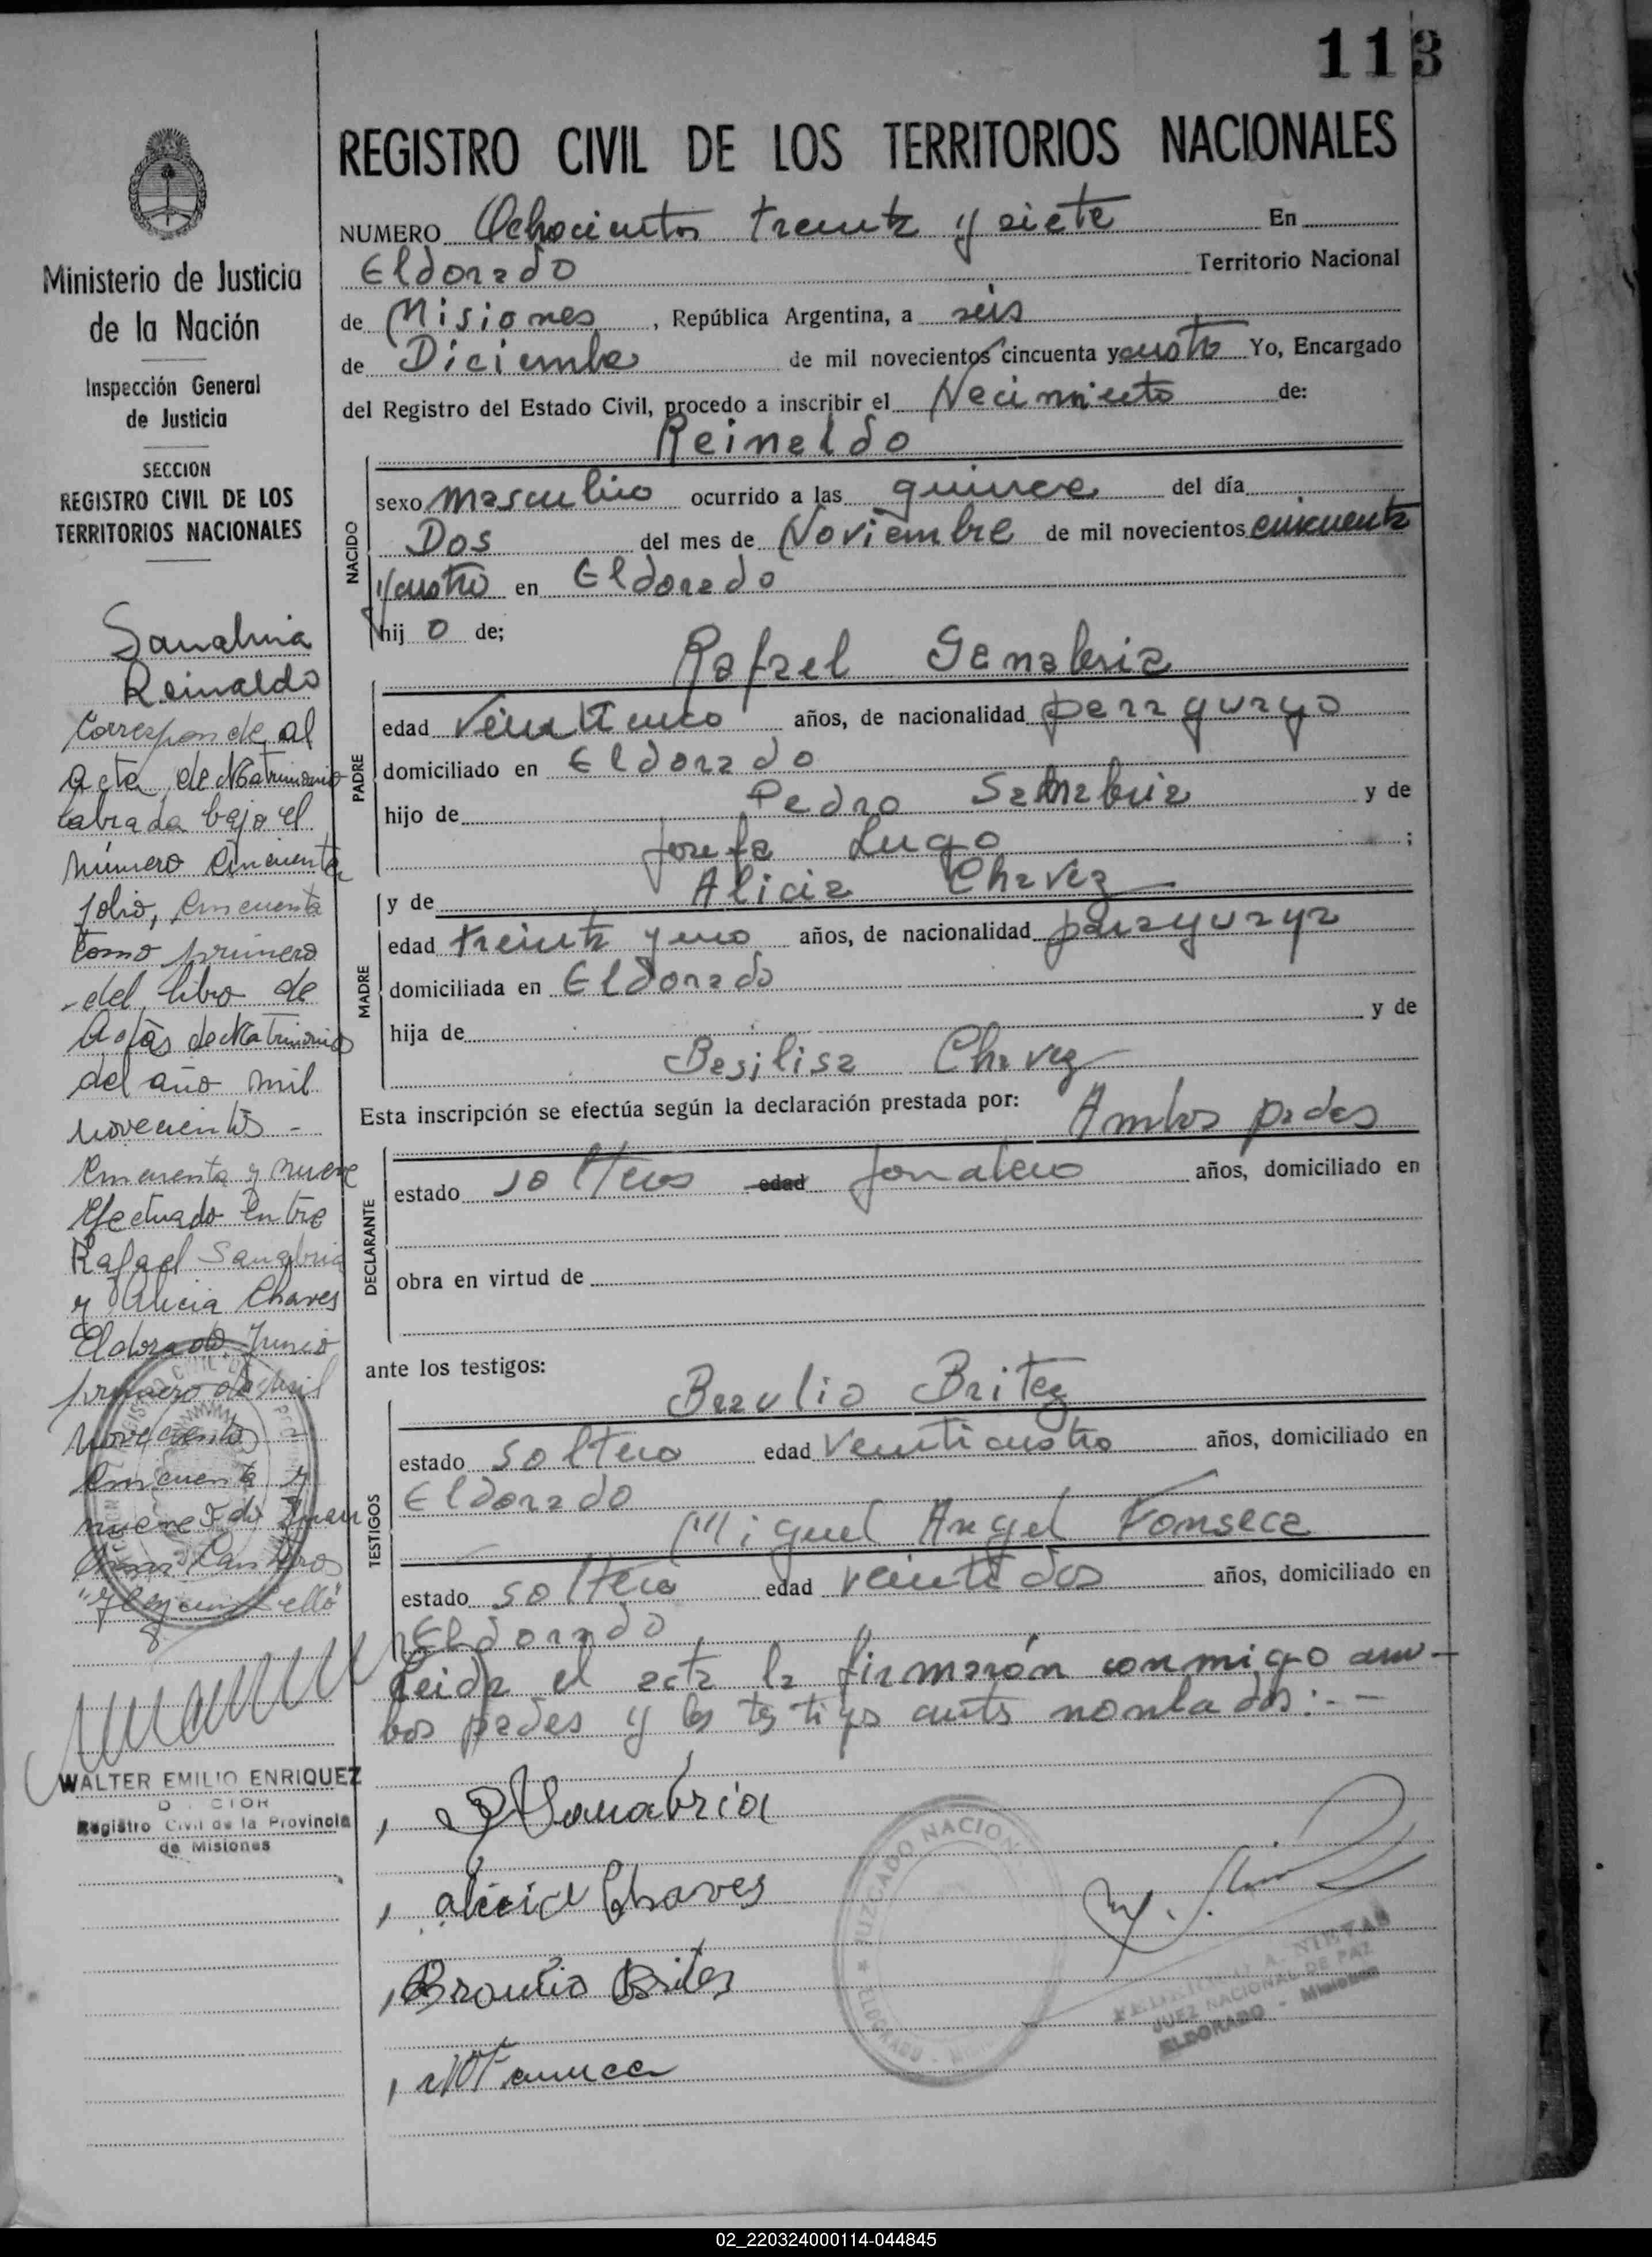 113
REGISTRO CIVIL DE LOS TERRITORIOS NACIONALES
NUMERO Ochocientos treinta y siete En
Eldorado Territorio Nacional
de Misiones, República Argentina, a seis
de Diciembre de mil novecientos cincuenta y cuatro Yo, Encargado
del Registro del Estado Civil, procedo a inscribir el Nacimiento de:
Reinaldo
NACIDO
sexo masculino ocurrido a las quince del día
Dos del mes de Noviembre de mil novecientos cincuenta
y cuatro en Eldorado
hijo de;
Rafael Sanabria
PADRE
edad veinticinco años, de nacionalidad paraguayo
domiciliado en Eldorado
hijo de Pedro Sanabria y de
Josefa Lugo;
y de Alicia Chavez
MADRE
edad treinta y uno años, de nacionalidad paraguaya
domiciliada en Eldorado
hija de y de
Basilisa Chavez
Esta inscripción se efectúa según la declaración prestada por: Ambos padres
DECLARANTE
estado solteros edad jornalero años, domiciliado en
obra en virtud de
ante los testigos:
Braulio Britez
TESTIGOS
estado soltero edad veinticuatro años, domiciliado en
Eldorado
Miguel Angel Fonseca
estado soltero edad veintidos años, domiciliado en
Eldorado
Leida el acta la firmarón conmigo am-
bos padres y los testigos antes nombrados:.-
Sanabria
Alicia Chaves
Braulio Brites
JUZGADO NACIONAL
ELDORADO
JUEZ NACIONAL DE PAZ
ELDORADO - Misiones
Ministerio de Justicia
de la Nación
Inspección General
de Justicia
SECCION
REGISTRO CIVIL DE LOS
TERRITORIOS NACIONALES
Sanabria
Reinaldo
Corresponde al
acta de Matrimonio
labrada bajo el
número cincuenta
folio, cincuenta
tomo primero
del libro de
Actas de Matrimonios
del año mil
novecientos -
cincuenta y nueve
efectuado entre
Rafael Sanabria
y Alicia Chaves
Eldorado, Junio
primero de mil
novecientos
cincuenta y
nueve
WALTER EMILIO ENRIQUEZ
Registro Civil de la Provincia
de Misiones
02_220324000114-044845